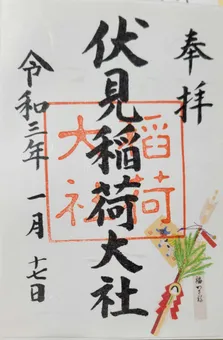 奉拝
伏見稲荷大社
稲荷
大社
令和三年 一月 十七日